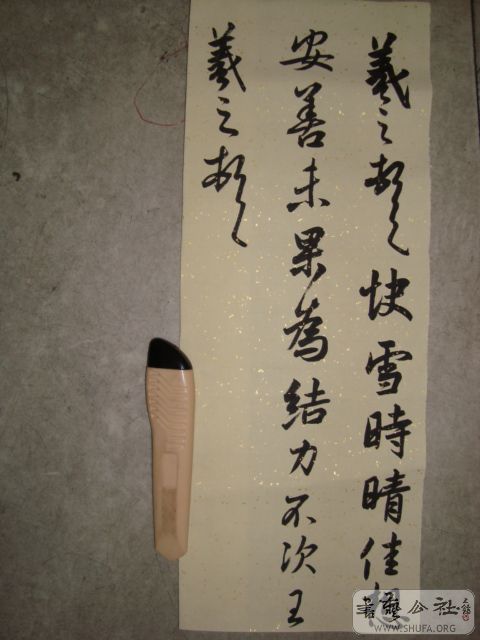 羲之頓首快雪時晴佳想
安善未果為結力不次王
羲之頓首
書藝公社
WWW.SHUFA.ORG